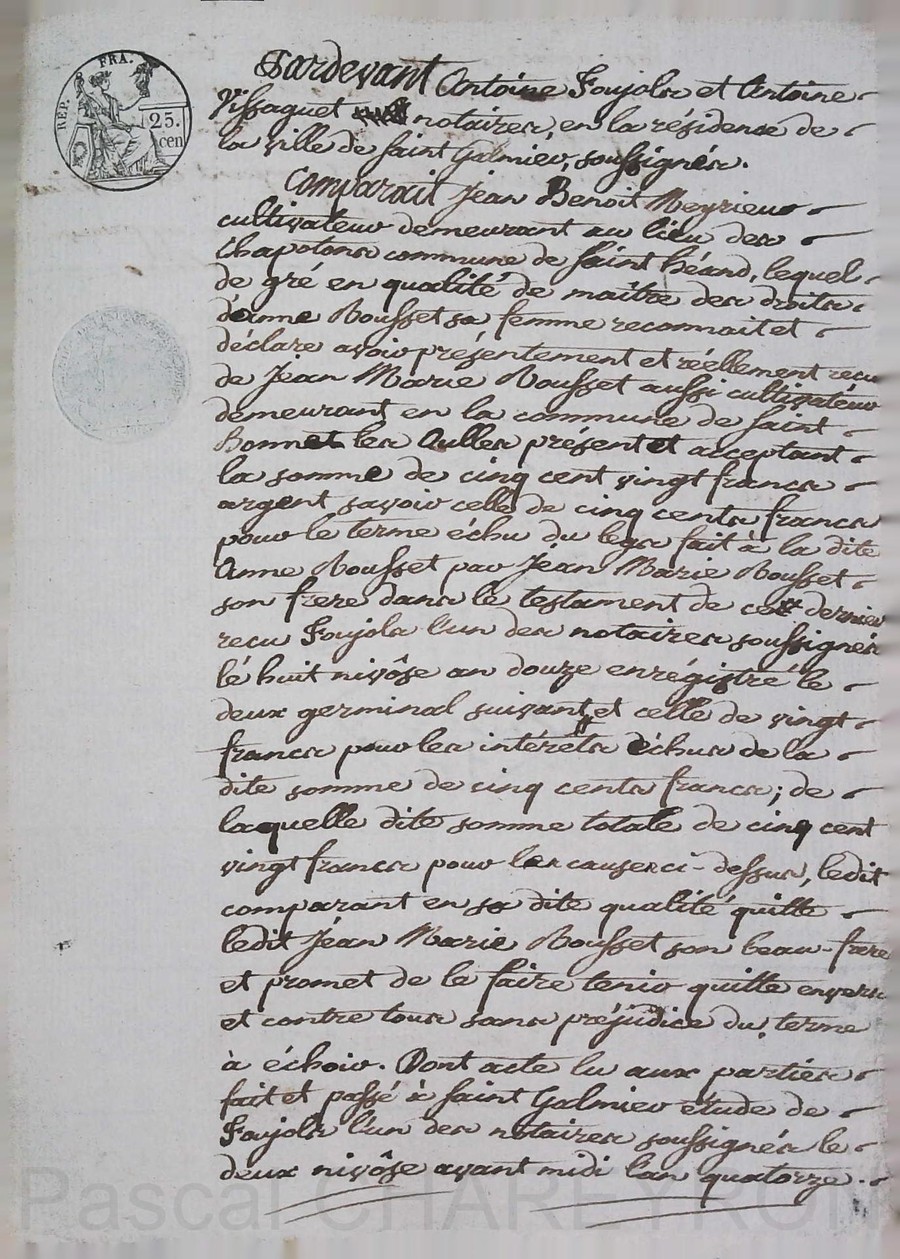 REP. FRA.
25.
cen
Pardevant Antoine Foujols et Antoine
Vissaguet notaires, en la résidence de
la ville de Saint Galmier, soussignés.
Comparait Jean Benoit Meyrieux
cultivateur demeurant au lieu des
Chapotons commune de Saint héand, lequel
de gré en qualité de maître des droits
d'anne Rousset sa femme reconnait et
déclare avoir présentement et réellement recu
de Jean Marie Rousset aussi cultivateur
demeurant en la commune de Saint
Bonnet les Oulles présent et acceptant
la somme de cinq cent vingt francs
argent savoir celle de cinq cents francs
pour le terme échu du legs fait à la dite
Anne Rousset par Jean Marie Rousset
son frere dans le testament de ce dernier
recu Foujols l'un des notaires soussignés
lé huit nivôse an douze enrégistré le
deux germinal suivant, et celle de vingt
francs pour les intérêts échus de la
dite somme de cinq cents francs; de
laquelle dite somme totale de cinq cent
vingt francs pour les causes ci-dessus, ledit
comparant en sa dite qualité quitte
ledit Jéan Marie Rousset son beau-frere
et promet de le faire tenir quitte envers
et contre tous sans préjudice du terme
à échoir. Dont acte lu aux parties
fait et passé à Saint Galmier étude de
Foujols l'un des notaires soussignés le
deux nivôse avant midi lan quatorze.
Pascal CHAREYRON